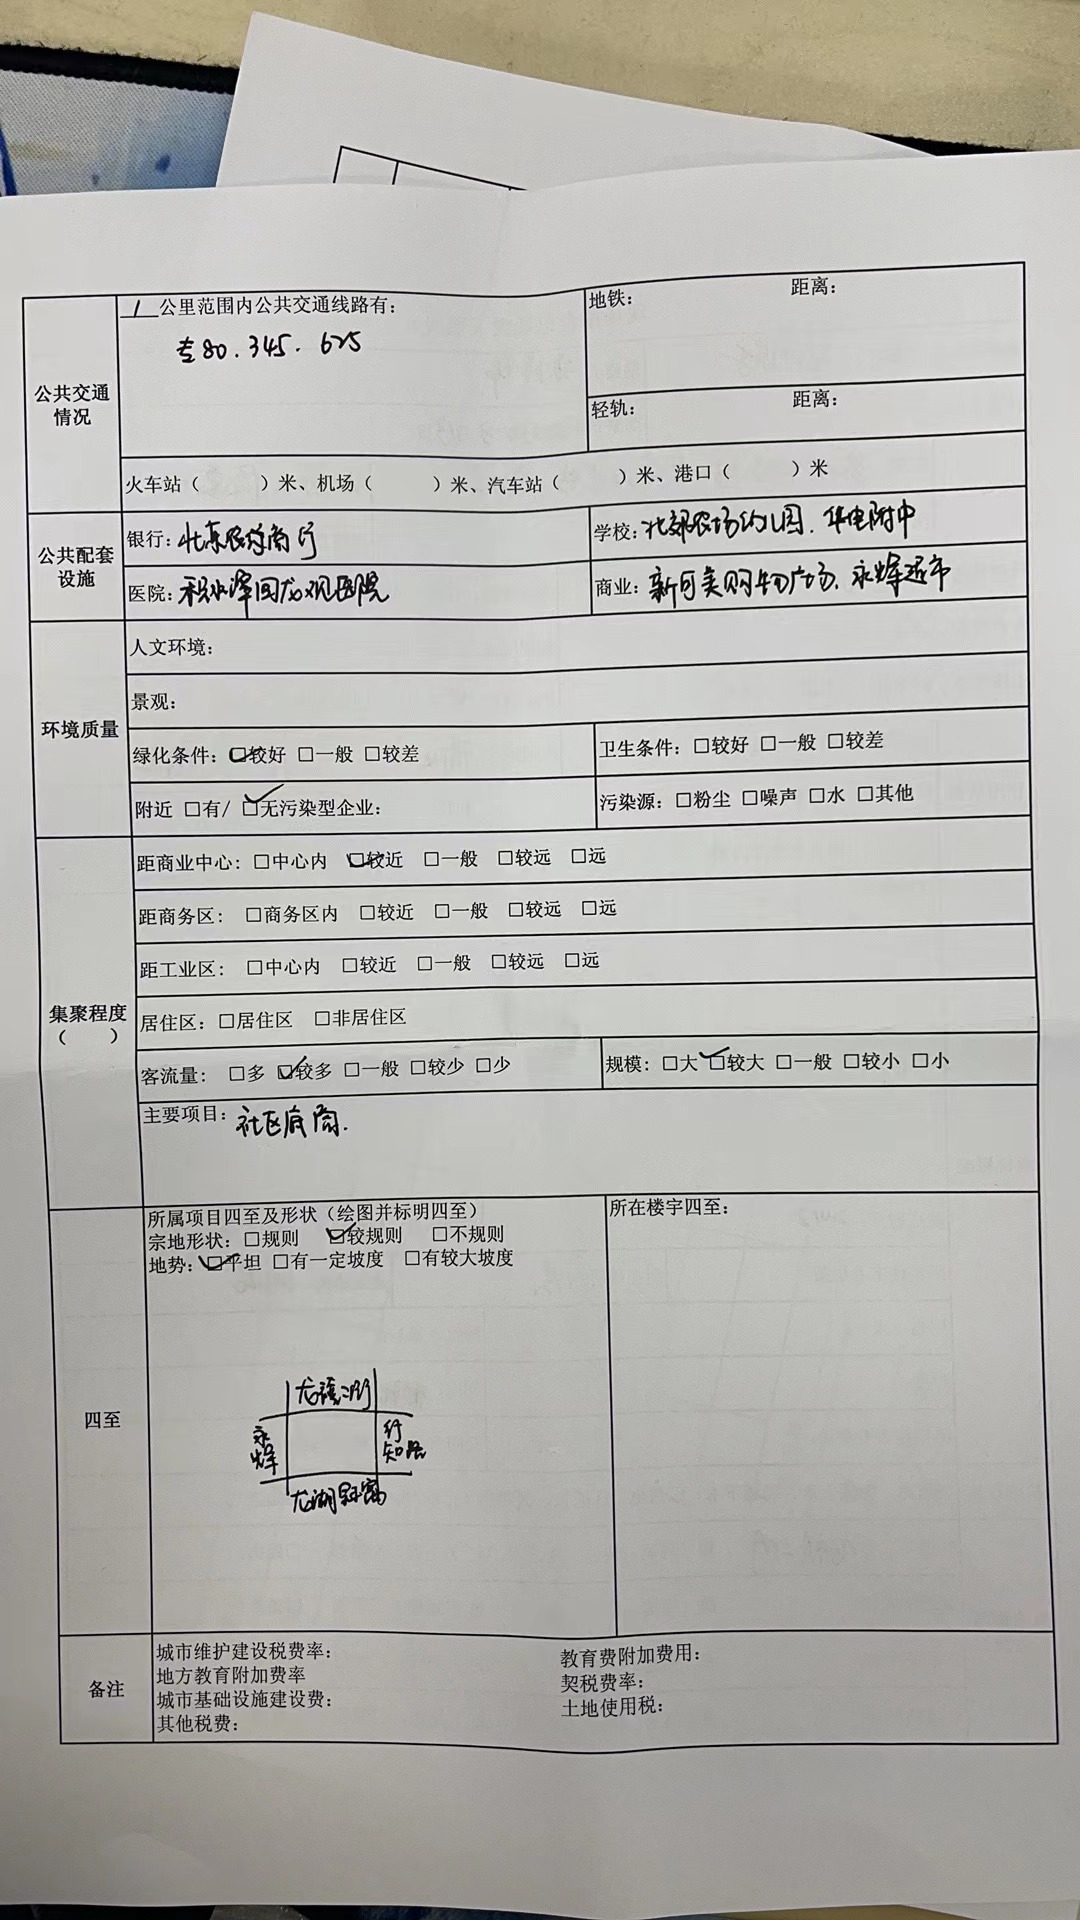 1 公里范围内公共交通线路有：
专80.345.625
地铁： 距离：
轻轨： 距离：
公共交通
情况
火车站（ ）米、机场（ ）米、汽车站（ ）米、港口（ ）米
公共配套
设施
银行：北京农商行
学校：北郊农场幼儿园.华电附中
医院：积水潭回龙观医院
商业：新日美购物广场.永辉超市
环境质量
人文环境：
景观：
绿化条件：☑较好 □一般 □较差
卫生条件：□较好 □一般 □较差
附近 □有/ ☑无污染型企业：
污染源：□粉尘 □噪声 □水 □其他
集聚程度
（ ）
距商业中心：□中心内 ☑较近 □一般 □较远 □远
距商务区： □商务区内 □较近 □一般 □较远 □远
距工业区： □中心内 □较近 □一般 □较远 □远
居住区：□居住区 □非居住区
客流量： □多 ☑较多 □一般 □较少 □少
规模：□大 ☑较大 □一般 □较小 □小
主要项目：社区底商.
四至
所属项目四至及形状（绘图并标明四至）
宗地形状：□规则 ☑较规则 □不规则
地势：☑平坦 □有一定坡度 □有较大坡度
龙禧二街
永
辉
行
知路
龙湖
所在楼宇四至：
备注
城市维护建设税费率：
地方教育附加费率
城市基础设施建设费：
其他税费：
教育费附加费用：
契税费率：
土地使用税：